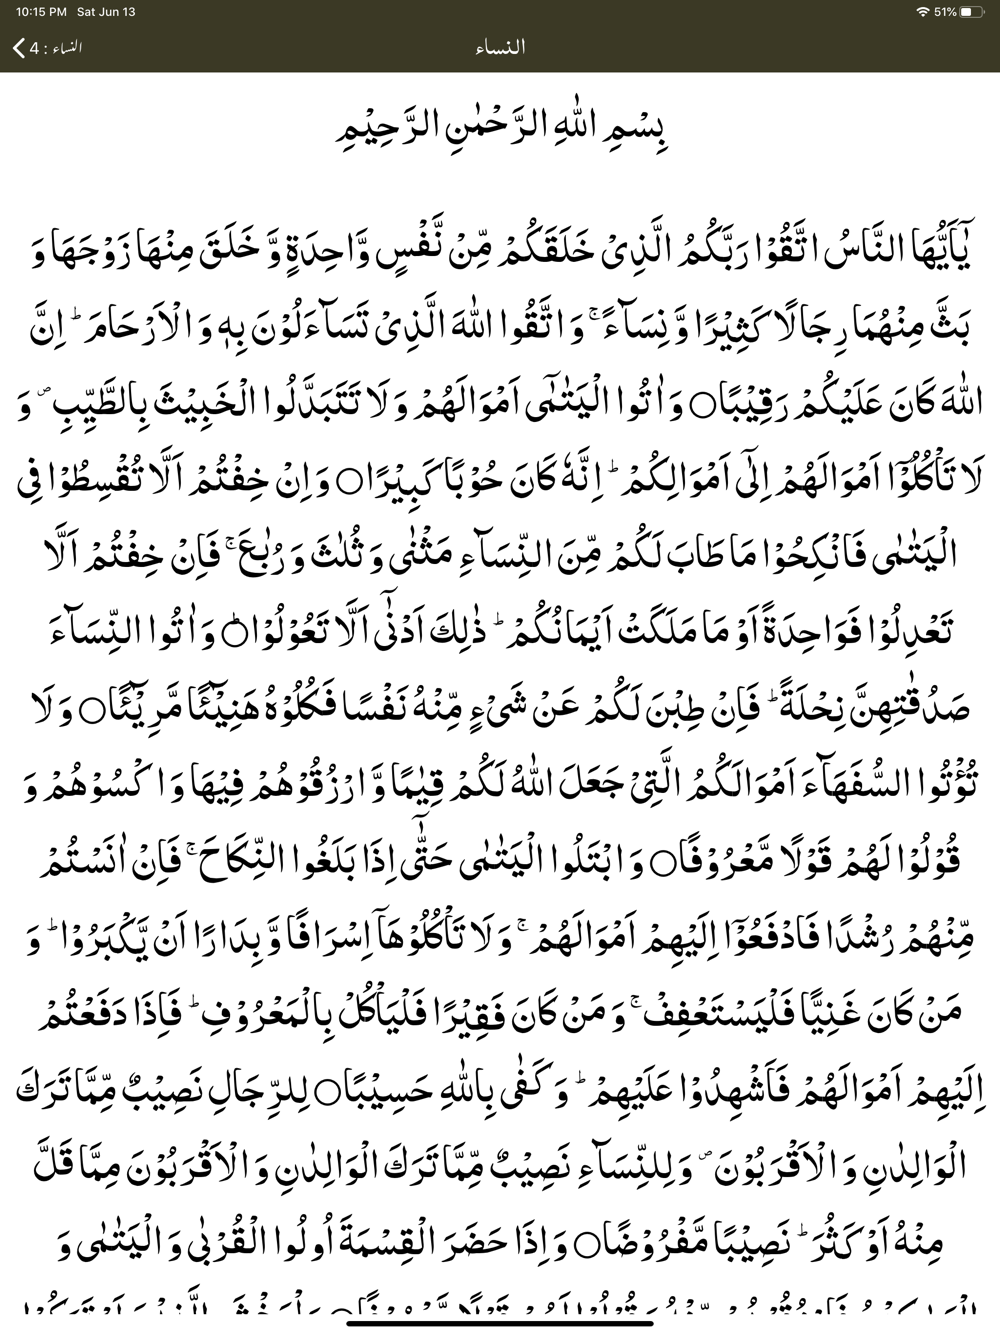 10:15 PM Sat Jun 13 51%
النساء : 4 النساء
بِسْمِ اللّٰهِ الرَّحْمٰنِ الرَّحِيْمِ
يٰۤاَيُّهَا النَّاسُ اتَّقُوْا رَبَّكُمُ الَّذِىْ خَلَقَكُمْ مِّنْ نَّفْسٍ وَّاحِدَةٍ وَّ خَلَقَ مِنْهَا زَوْجَهَا وَ
بَثَّ مِنْهُمَا رِجَالًا كَثِيْرًا وَّ نِسَآءً ۚ وَ اتَّقُوا اللّٰهَ الَّذِىْ تَسَآءَلُوْنَ بِهٖ وَ الْاَرْحَامَ ؕ اِنَّ
اللّٰهَ كَانَ عَلَيْكُمْ رَقِيْبًا○ وَ اٰتُوا الْيَتٰمٰٓى اَمْوَالَهُمْ وَ لَا تَتَبَدَّلُوا الْخَبِيْثَ بِالطَّيِّبِ ۪ وَ
لَا تَاْكُلُوْۤا اَمْوَالَهُمْ اِلٰٓى اَمْوَالِكُمْ ؕ اِنَّهٗ كَانَ حُوْبًا كَبِيْرًا○ وَ اِنْ خِفْتُمْ اَلَّا تُقْسِطُوْا فِى
الْيَتٰمٰى فَانْكِحُوْا مَا طَابَ لَكُمْ مِّنَ النِّسَآءِ مَثْنٰى وَ ثُلٰثَ وَ رُبٰعَ ۚ فَاِنْ خِفْتُمْ اَلَّا
تَعْدِلُوْا فَوَاحِدَةً اَوْ مَا مَلَكَتْ اَيْمَانُكُمْ ؕ ذٰلِكَ اَدْنٰٓى اَلَّا تَعُوْلُوْا○ؕ وَ اٰتُوا النِّسَآءَ
صَدُقٰتِهِنَّ نِحْلَةً ؕ فَاِنْ طِبْنَ لَكُمْ عَنْ شَىْءٍ مِّنْهُ نَفْسًا فَكُلُوْهُ هَنِيْٓئًا مَّرِيْٓئًا○ وَ لَا
تُؤْتُوا السُّفَهَآءَ اَمْوَالَكُمُ الَّتِىْ جَعَلَ اللّٰهُ لَكُمْ قِيٰمًا وَّ ارْزُقُوْهُمْ فِيْهَا وَ اكْسُوْهُمْ وَ
قُوْلُوْا لَهُمْ قَوْلًا مَّعْرُوْفًا○ وَ ابْتَلُوا الْيَتٰمٰى حَتّٰٓى اِذَا بَلَغُوا النِّكَاحَ ۚ فَاِنْ اٰنَسْتُمْ
مِّنْهُمْ رُشْدًا فَادْفَعُوْۤا اِلَيْهِمْ اَمْوَالَهُمْ ۚ وَ لَا تَاْكُلُوْهَاۤ اِسْرَافًا وَّ بِدَارًا اَنْ يَّكْبَرُوْا ؕ وَ
مَنْ كَانَ غَنِيًّا فَلْيَسْتَعْفِفْ ۚ وَ مَنْ كَانَ فَقِيْرًا فَلْيَاْكُلْ بِالْمَعْرُوْفِ ؕ فَاِذَا دَفَعْتُمْ
اِلَيْهِمْ اَمْوَالَهُمْ فَاَشْهِدُوْا عَلَيْهِمْ ؕ وَ كَفٰى بِاللّٰهِ حَسِيْبًا○ لِلرِّجَالِ نَصِيْبٌ مِّمَّا تَرَكَ
الْوَالِدٰنِ وَ الْاَقْرَبُوْنَ ۪ وَ لِلنِّسَآءِ نَصِيْبٌ مِّمَّا تَرَكَ الْوَالِدٰنِ وَ الْاَقْرَبُوْنَ مِمَّا قَلَّ
مِنْهُ اَوْ كَثُرَ ؕ نَصِيْبًا مَّفْرُوْضًا○ وَ اِذَا حَضَرَ الْقِسْمَةَ اُولُوا الْقُرْبٰى وَ الْيَتٰمٰى وَ